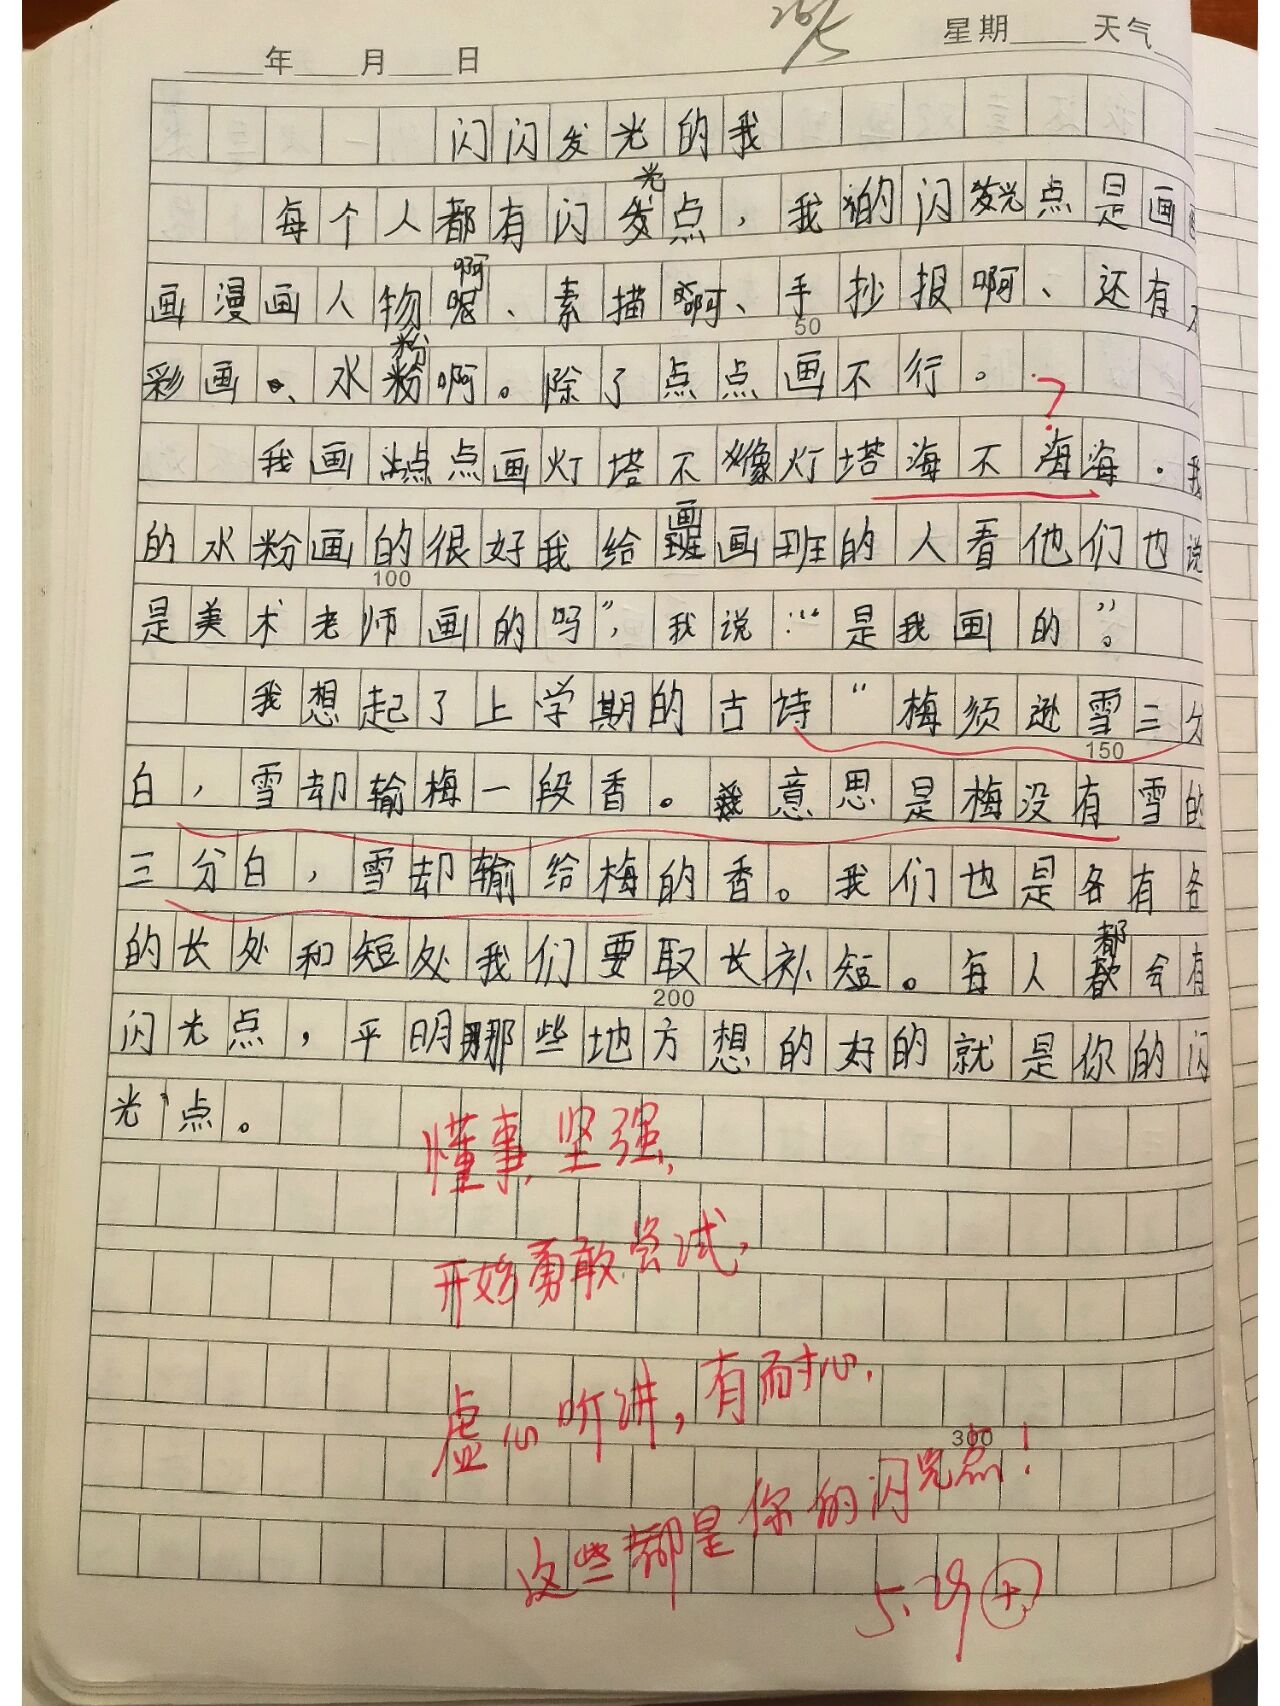 年 月 日
星期 天气
闪闪发光的我
每个人都有闪光点，我的闪光点是画
画漫画人物啊、素描啊、手抄报啊、还有
50
彩画、水粉啊。除了点点画不行。
?
我画点点画灯塔不像灯塔海不海海.我
的水粉画的很好我给画画班的人看他们也说
100
是美术老师画的吗”，我说：“是我画的”。
我想起了上学期的古诗“梅须逊雪三分
150
白，雪却输梅一段香。意思是梅没有雪的
三分白，雪却输给梅的香。我们也是各有各
的长处和短处我们要取长补短。每人都会有
200
闪光点，平明那些地方想的好的就是你的闪
光点。
懂事,坚强,
开始勇敢尝试,
虚心听讲,有耐心.
300
这些都是你的闪光点!
5.29 +